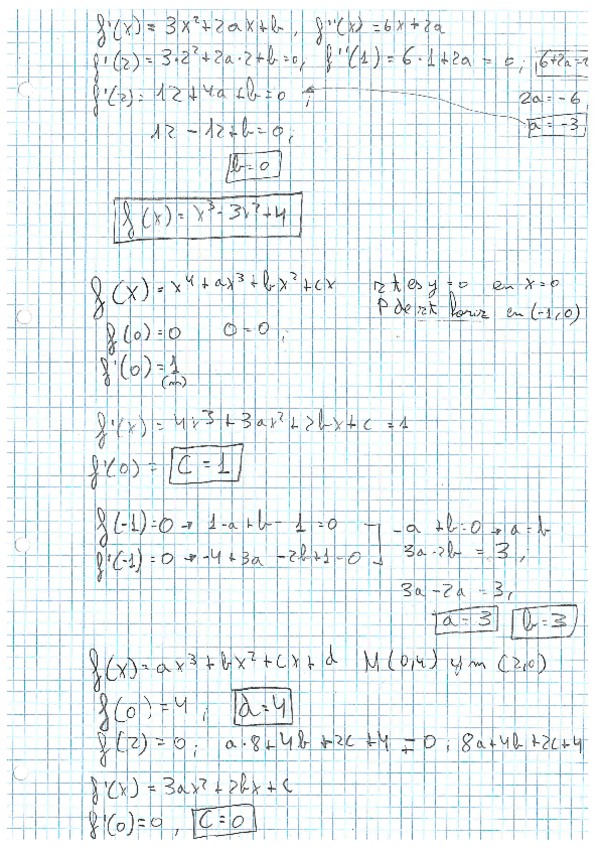 f'(x) = 3x²+2ax+b, f''(x) = 6x+2a
f'(2) = 3·2²+2a·2+b=0, f''(1) = 6·1+2a = 0; 6+2a=
f'(2) = 12+4a+b=0; 2a = -6
12 -12+b=0, a = -3
b=0
f(x) = x³-3x²+4
f(x) = x⁴+ax³+bx²+cx rt es y=0 en x=0
f(0)=0 0=0; P de rt horiz en (-1,0)
f'(0)=1
(m)
f'(x) = 4x³+3ax²+2bx+c = 1
f'(0) = C = 1
f(-1)=0 → 1-a+b-1=0 -a+b=0 → a=b
f'(-1)=0 → -4+3a-2b+1=0 3a-2b = 3,
3a-2a = 3,
a = 3 b=3
f(x) = ax³+bx²+cx+d M(0,4) y m (2,0)
f(0)=4, d=4
f(2)=0; a·8+4b+2c+4=0; 8a+4b+2c+4
f'(x) = 3ax²+2bx+c
f'(0)=0, C=0